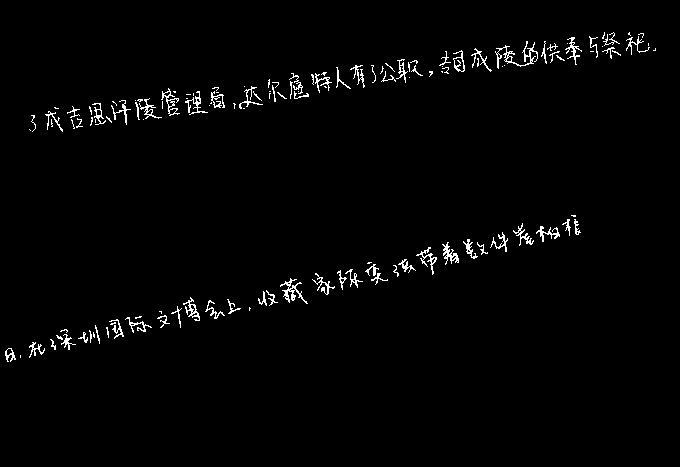 了成吉思汗陵管理局,达尔扈特人有了公职,专司成陵的供奉与祭祀.
日,在深圳国际文博会上,收藏家陈奕洪带着数件老相框